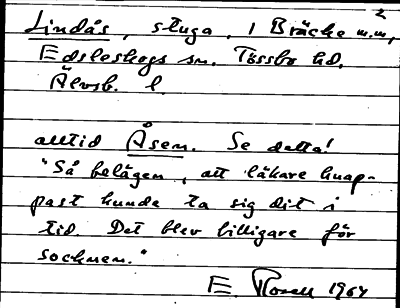 Lindås, stuga, i Bräcke m.m,²
Edsleskogs sn. Tössbo hd.
Älvsb. l.
alltid Åsen. Se detta!
"Så belägen, att läkare knap-
past kunde ta sig dit i
tid. Det blev billigare för
socknen."
E Rosell 1964